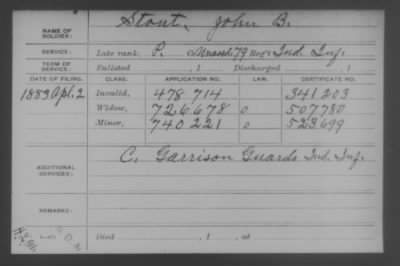 NAME OF SOLDIER: Stout, John B.
SERVICE: Late rank, P. Co. 79 Reg't Ind. Inf.
TERM OF SERVICE: Enlisted , 1 Discharged , 1
DATE OF FILING. CLASS. APPLICATION NO. LAW. CERTIFICATE NO.
1883 Apl. 2 Invalid, 478 714 341 203
Widow, 726678 0 507780
Minor, 740 221 0 523699
ADDITIONAL SERVICES: C. Garrison Guards Ind. Inf.
REMARKS:
Died , 1 , at